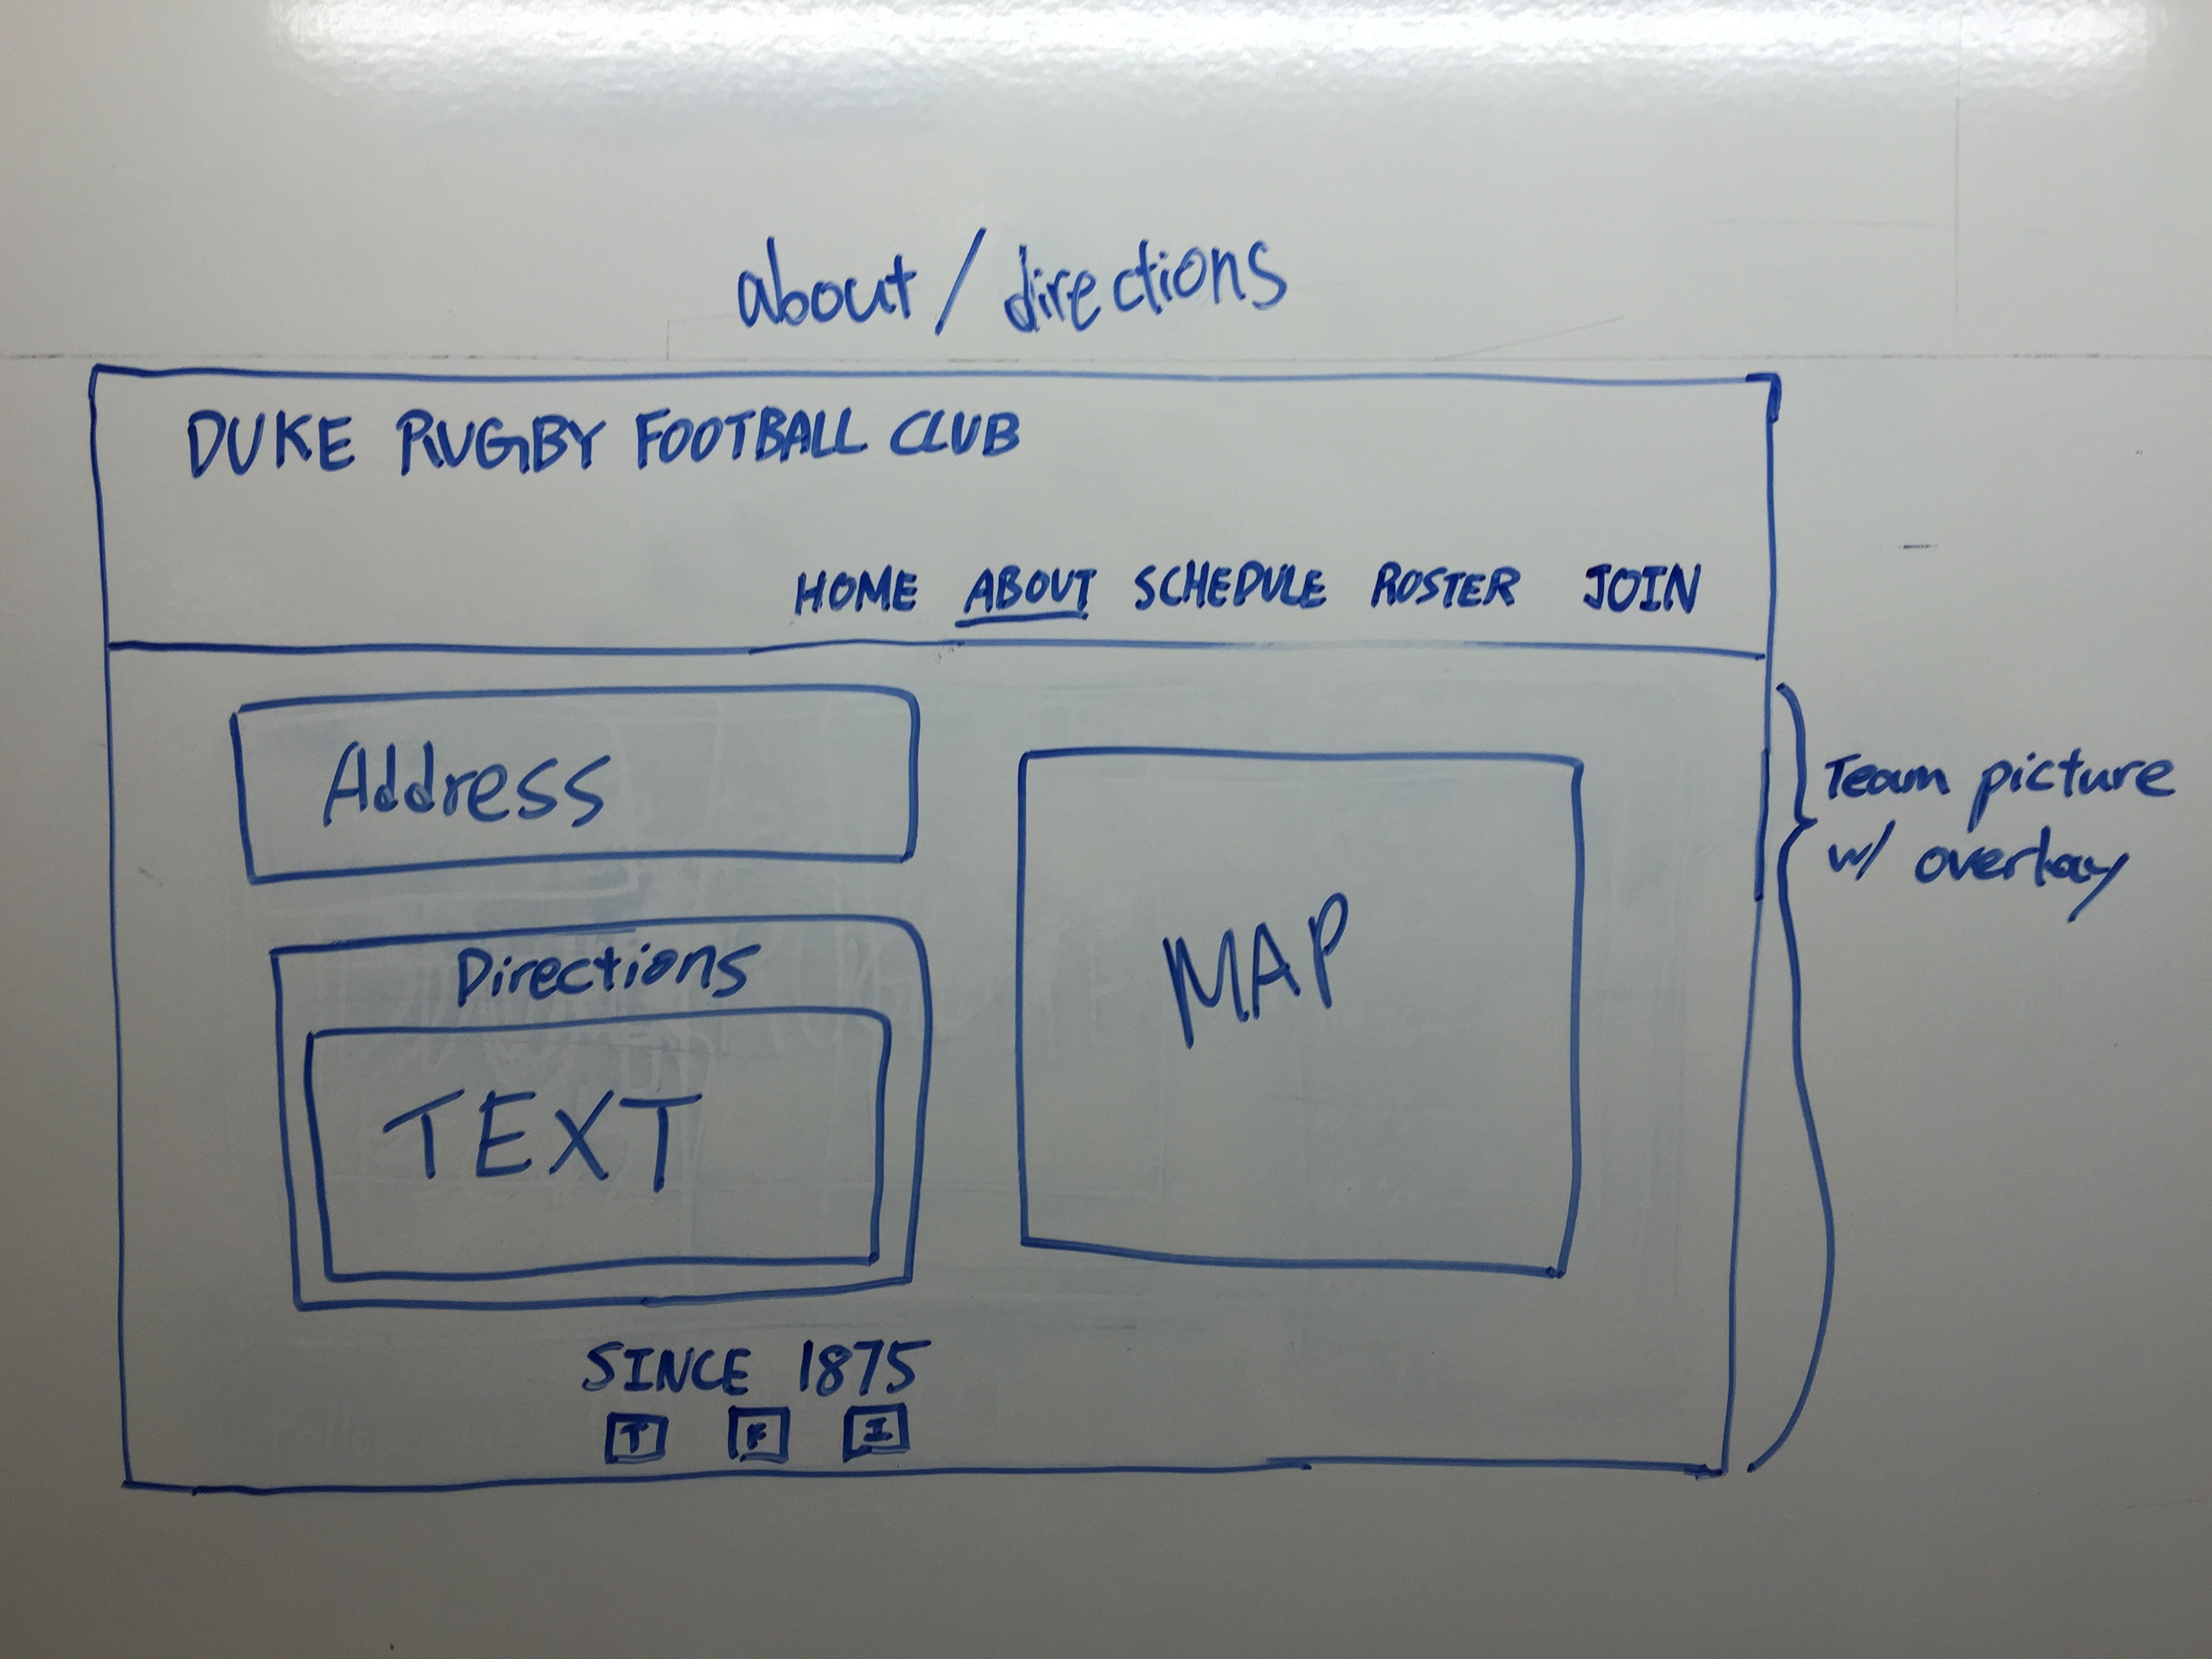 about/directions
DUKE RUGBY FOOTBALL CLUB
HOME ABOUT SCHEDULE ROSTER JOIN
Address
Directions
TEXT
MAP
Team picture
w/ overlay
SINCE 1875
T F I